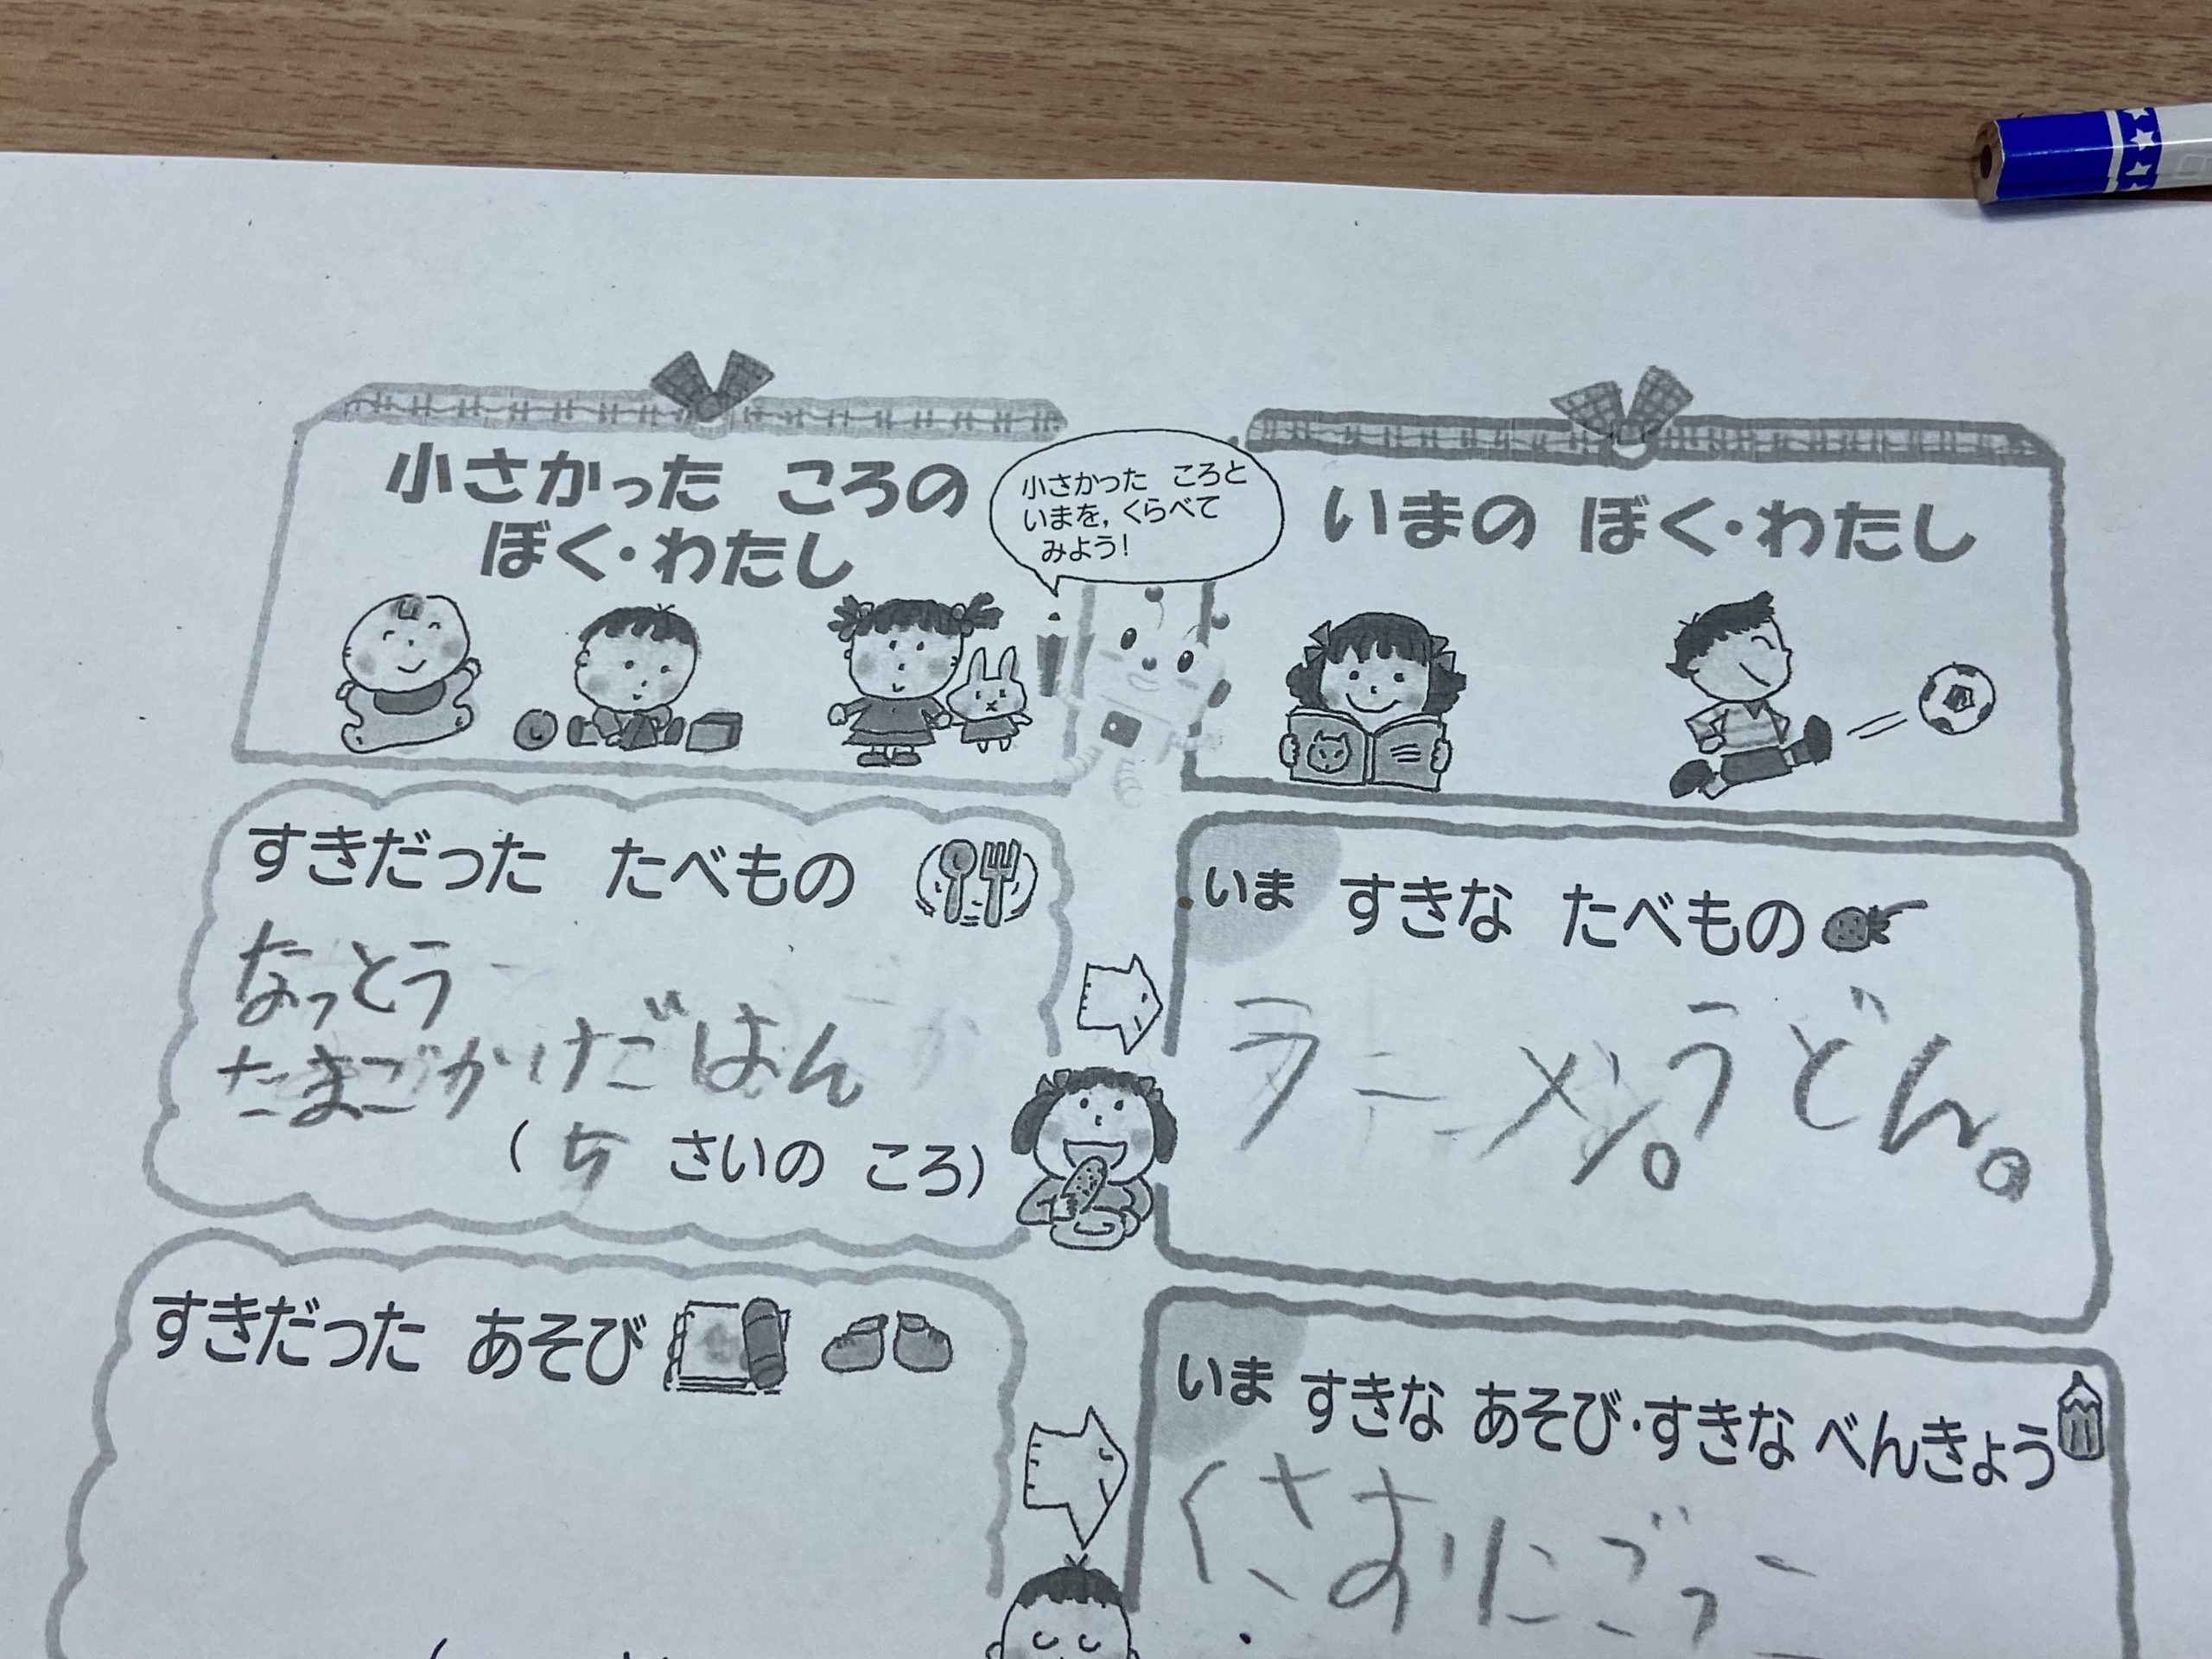 小さかった ころの
ぼく・わたし
小さかった ころと
いまを，くらべて
みよう！
いまの ぼく・わたし
すきだった たべもの
なっとう
たまごかけごはん
( 5 さいの ころ)
いま すきな たべもの
ラーメン。うどん。
すきだった あそび
いま すきな あそび・すきな べんきょう